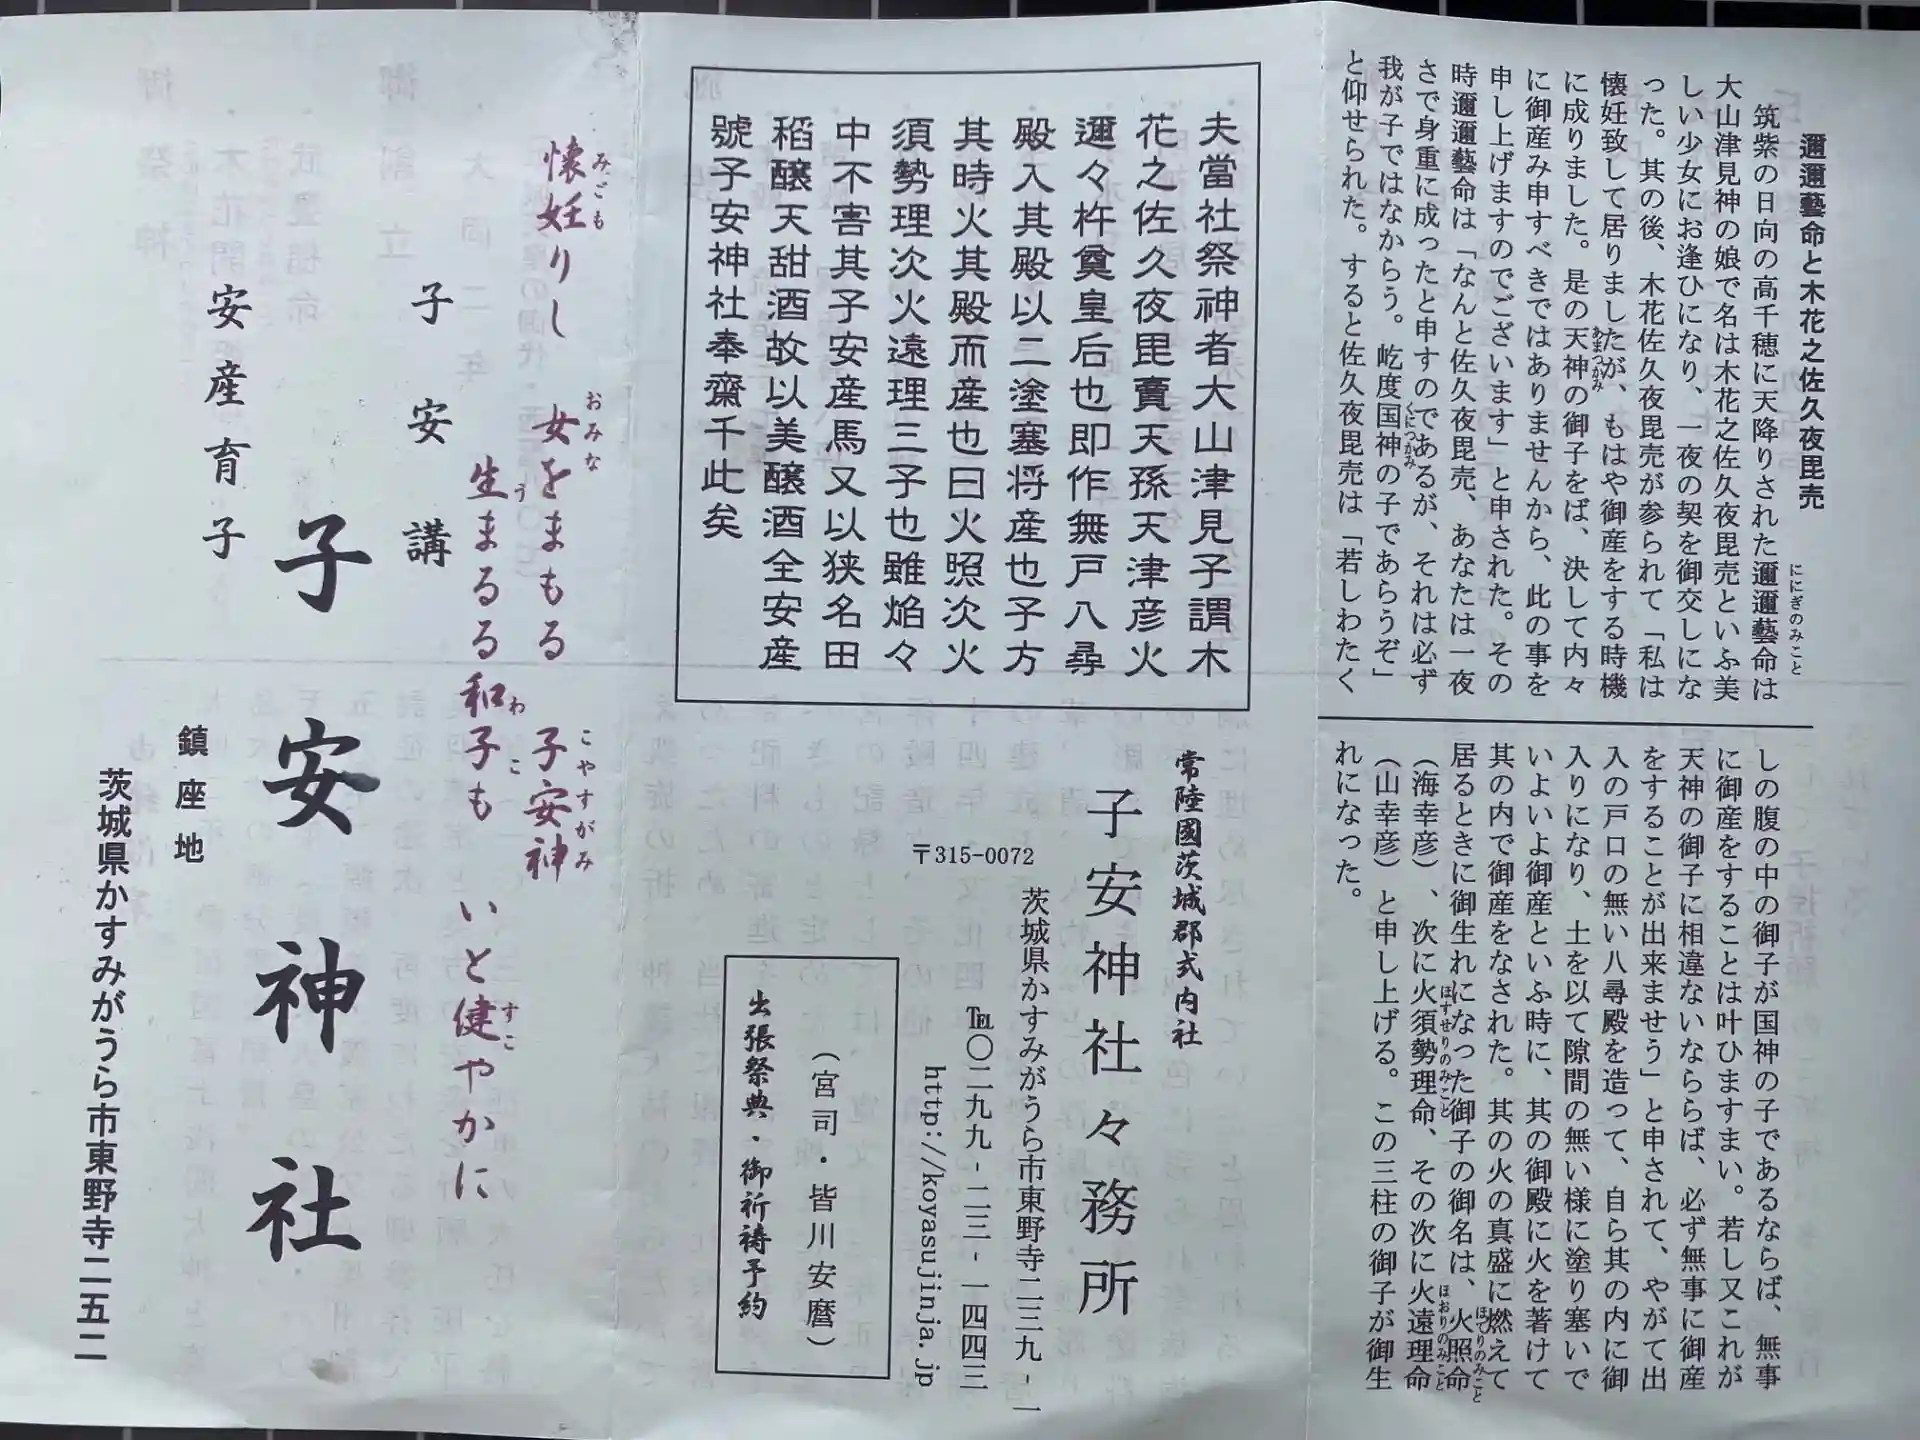 邇邇藝命と木花之佐久夜毘売
筑紫の日向の高千穂に天降りされた邇邇藝命は
ににぎのみこと
大山津見神の娘で名は木花之佐久夜毘売といふ美
しい少女にお逢ひになり、一夜の契を御交しにな
った。其の後、木花佐久夜毘売が参られて「私は
懐妊致して居りましたが、もはや御産をする時機
に成りました。是の天神の御子をば、決して内々
あまつかみ
に御産み申すべきではありませんから、此の事を
申し上げますのでございます」と申された。その
時邇邇藝命は「なんと佐久夜毘売、あなたは一夜
さで身重に成ったと申すのであるが、それは必ず
我が子ではなからう。屹度国神の子であらうぞ」
くにつかみ
と仰せられた。すると佐久夜毘売は「若しわたく
しの腹の中の御子が国神の子であるならば、無事
に御産をすることは叶ひますまい。若し又これが
天神の御子に相違ないならば、必ず無事に御産
をすることが出来ませう」と申されて、やがて出
入の戸口の無い八尋殿を造って、自ら其の内に御
入りになり、土を以て隙間の無い様に塗り塞いで
いよいよ御産といふ時に、其の御殿に火を著けて
其の内で御産をなされた。其の火の真盛に燃えて
居るときに御生れになった御子の御名は、火照命
ほでりのみこと
（海幸彦）、次に火須勢理命、その次に火遠理命
ほすせりのみこと
ほおりのみこと
（山幸彦）と申し上げる。この三柱の御子が御生
れになった。
夫當社祭神者大山津見子謂木
花之佐久夜毘賣天孫天津彦火
邇々杵奠皇后也即作無戸八尋
殿入其殿以二塗塞将産也子方
其時火其殿而産也曰火照次火
須勢理次火遠理三子也雖焔々
中不害其子安産馬又以狭名田
稻醸天甜酒故以美醸酒全安産
號子安神社奉齋千此矣
常陸國茨城郡式内社
子安神社々務所
〒315-0072
茨城県かすみがうら市東野寺二三九-一
℡〇二九九-二三-一四四三
http://koyasujinja.jp
（宮司・皆川安麿）
出張祭典・御祈祷予約
懐妊りし 女をまもる 子安神
みごも おみな こやすがみ
生まるる和子も いと健やかに
う わこ すこ
子安講
子安神社
安産育子
鎮座地
茨城県かすみがうら市東野寺二五二